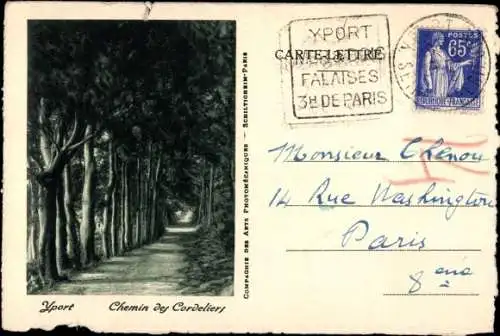 YPORT
FALAISES
3H DE PARIS
CARTE-LETTRE
POSTES
65c
Monsieur Chenou
14 Rue Washington,
Paris
8eme
COMPAGNIE DES ARTS PHOTOMÉCANIQUES - SCHILTIGHEIM-PARIS
Yport Chemin des Cordeliers